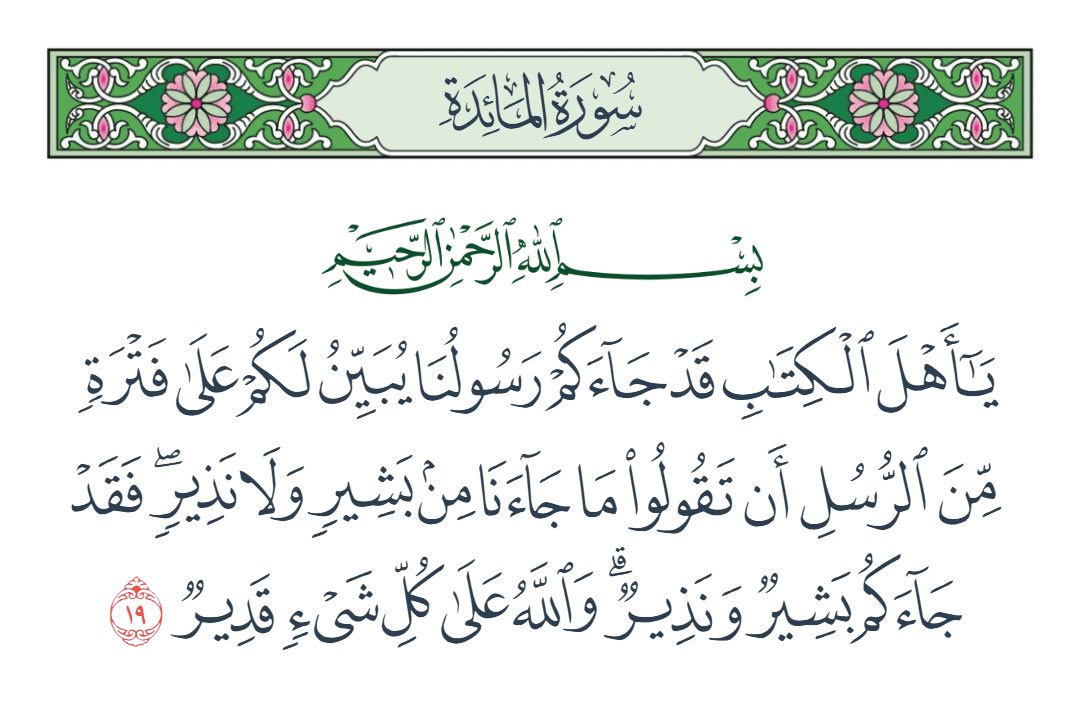 سُورَةُ المَائِدَةِ
بِسْمِ ٱللَّهِ ٱلرَّحْمَٰنِ ٱلرَّحِيمِ
يَـٰٓأَهْلَ ٱلْكِتَـٰبِ قَدْ جَآءَكُمْ رَسُولُنَا يُبَيِّنُ لَكُمْ عَلَىٰ فَتْرَةٍۢ
مِّنَ ٱلرُّسُلِ أَن تَقُولُوا۟ مَا جَآءَنَا مِنۢ بَشِيرٍۢ وَلَا نَذِيرٍۢ ۖ فَقَدْ
جَآءَكُم بَشِيرٌۭ وَنَذِيرٌۭ ۗ وَٱللَّهُ عَلَىٰ كُلِّ شَىْءٍۢ قَدِيرٌۭ ١٩